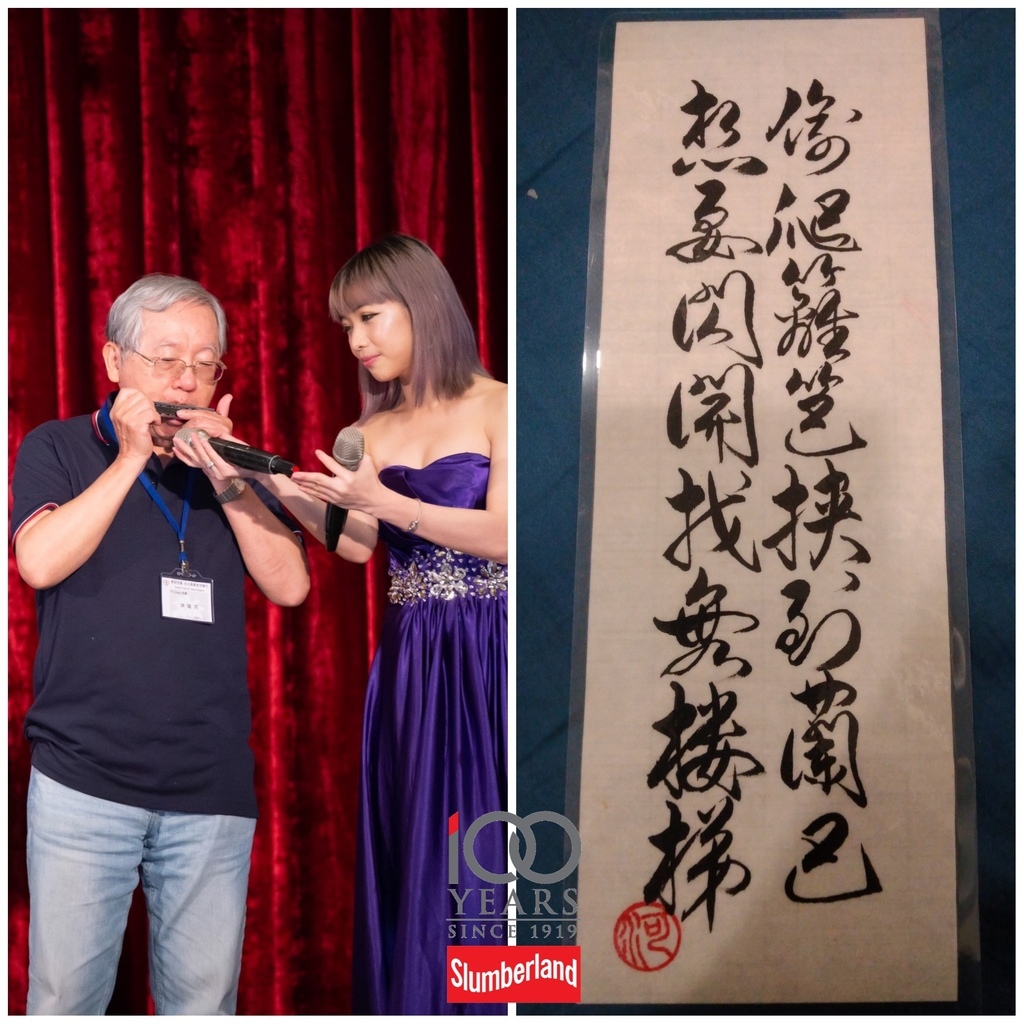 偷爬籬笆挾到蘭巴
想要閃開找無樓梯
河
100
YEARS
SINCE 1919
Slumberland